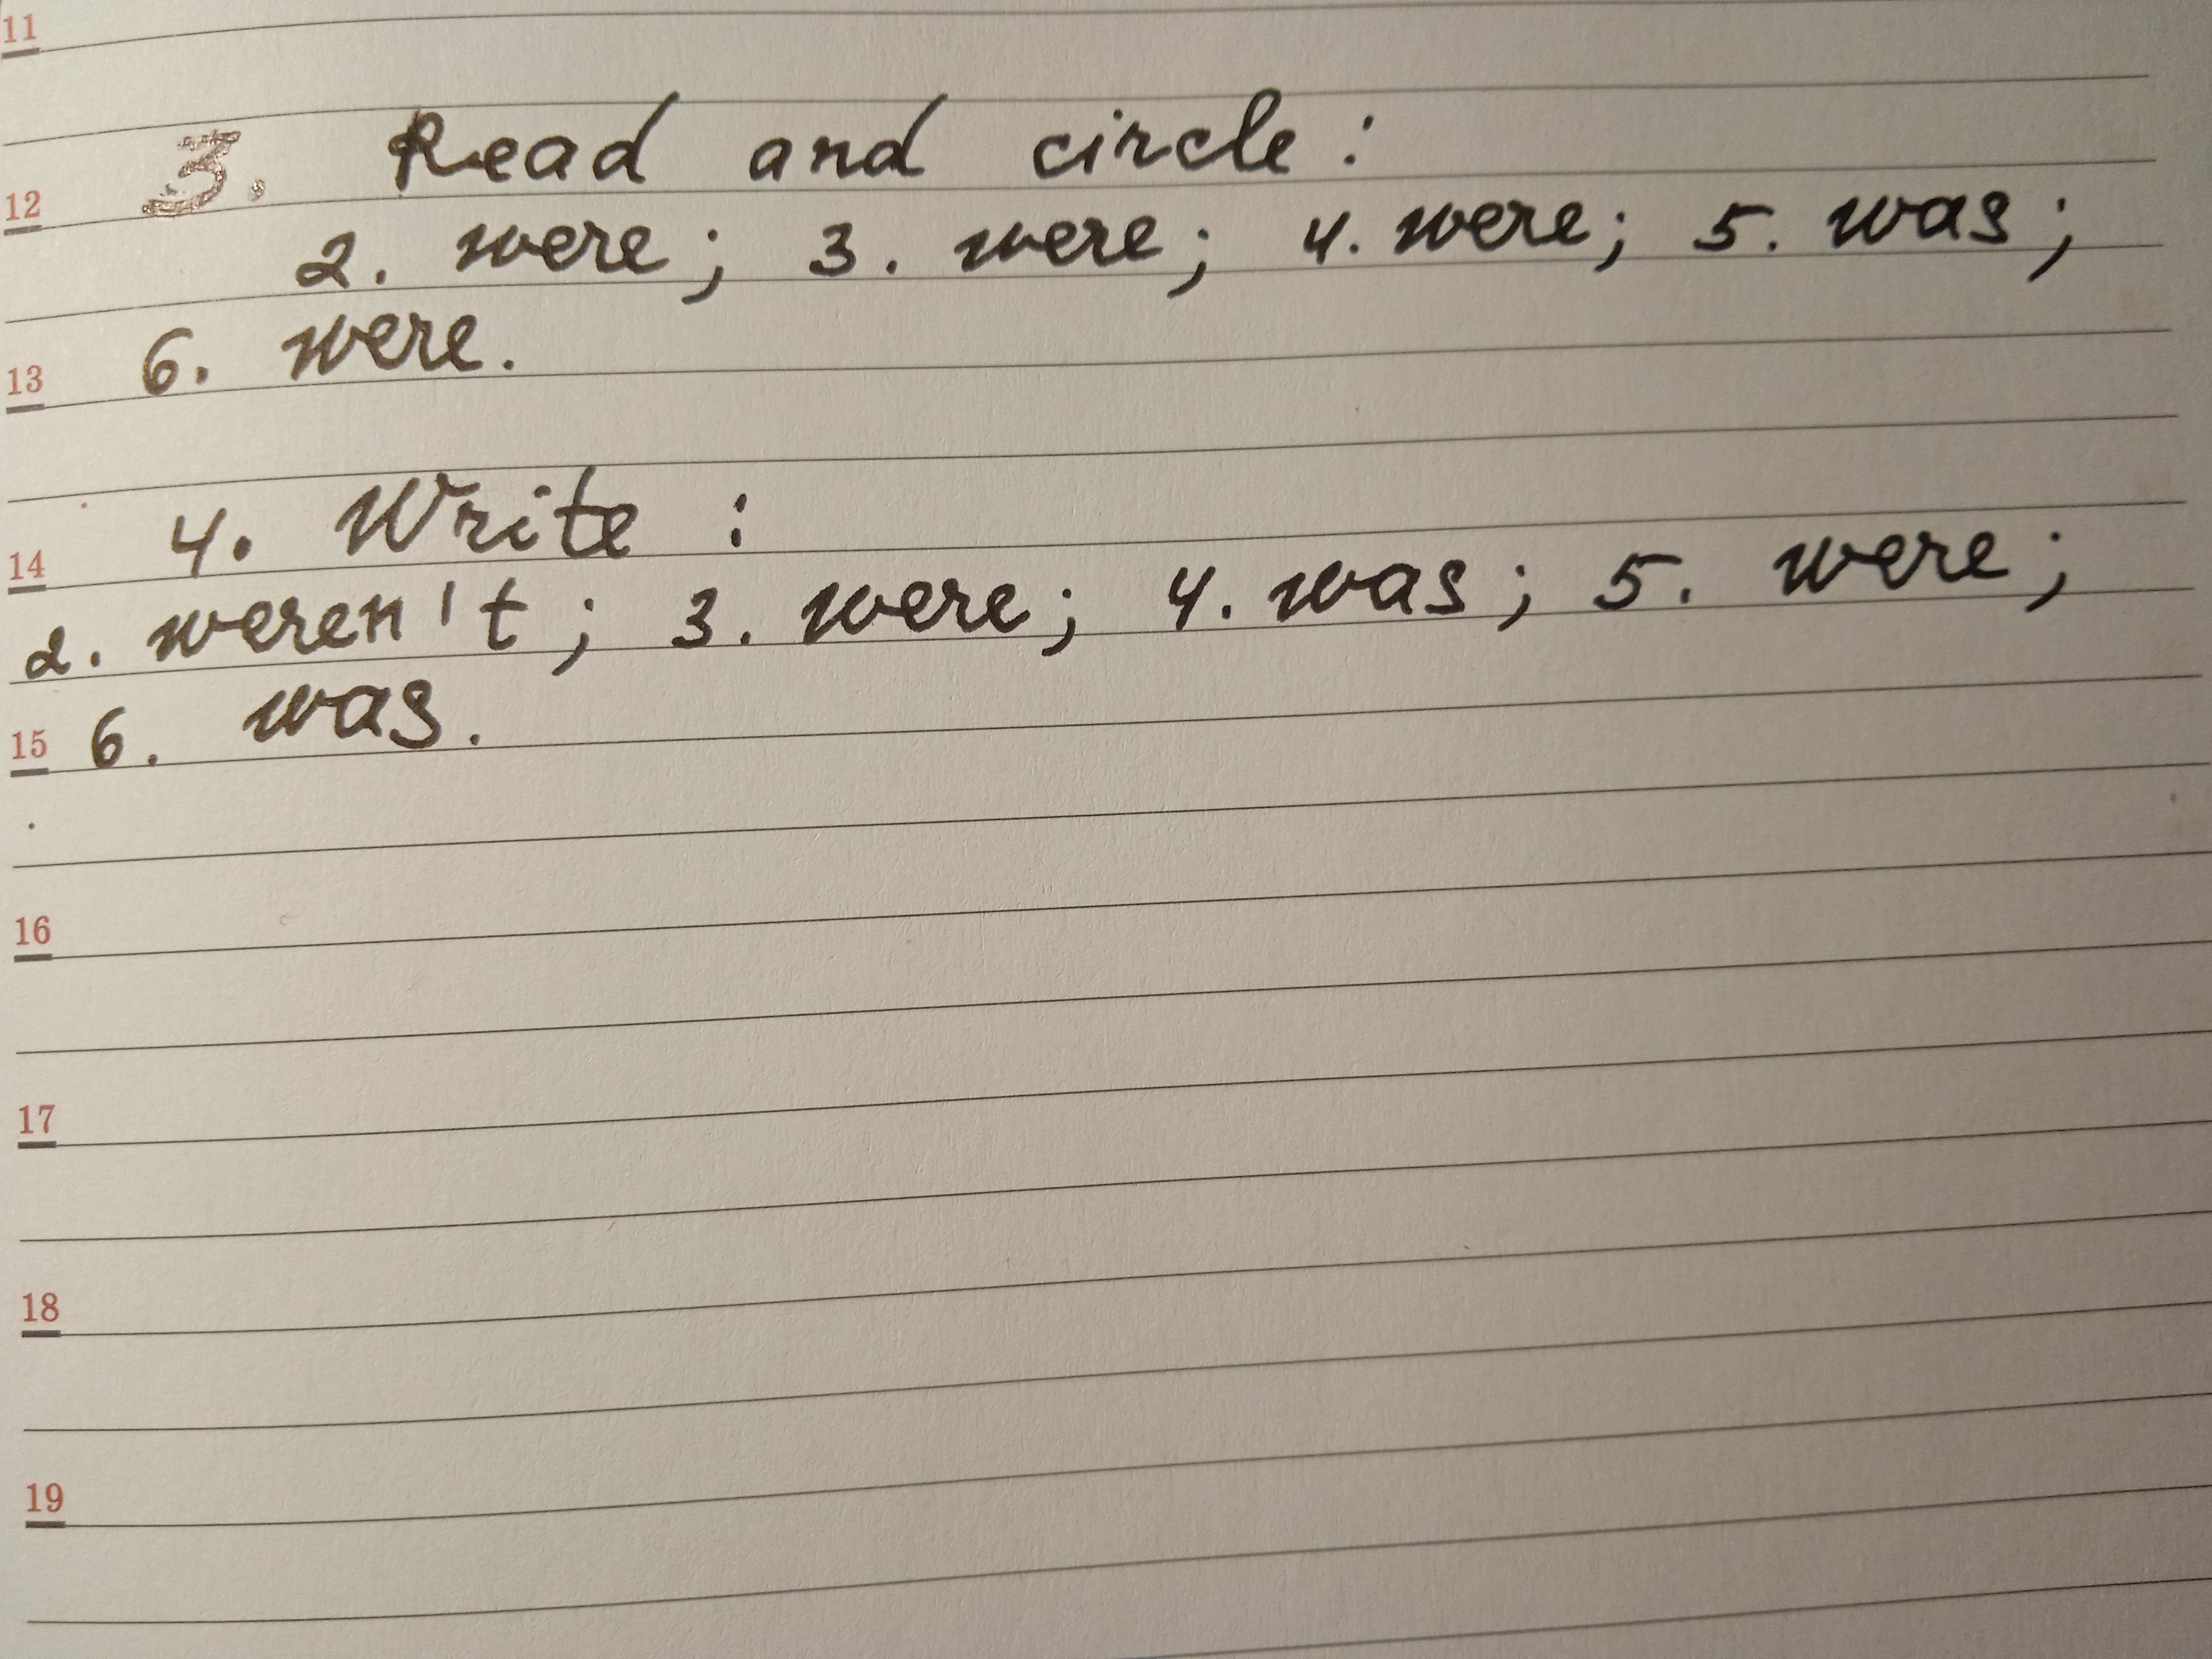 11
3. Read and circle :
12
2. were; 3. were; 4. were; 5. was;
13 6. were.
4. Write :
14
2. weren't; 3. were; 4. was; 5. were;
15 6. was.
16
17
18
19